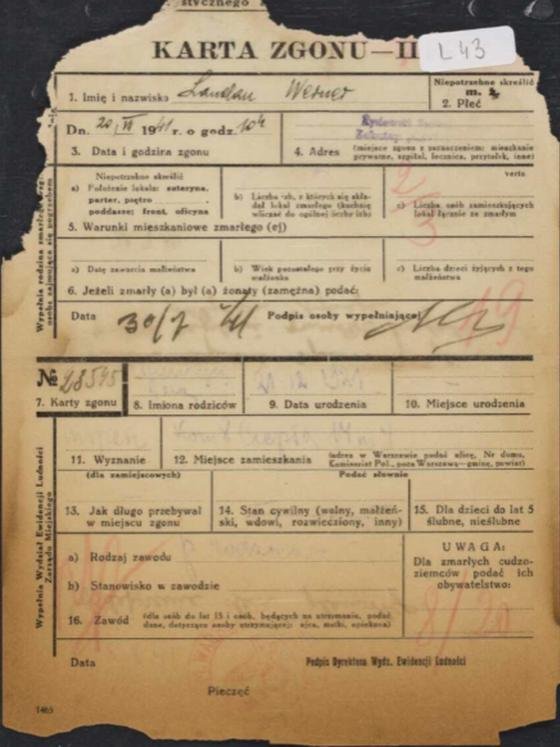 stycznego
KARTA ZGONU—II
L 43
1. Imię i nazwisko Landau Werner
Niepotrzebne skreślić
m.
2. Płeć
Dn. 20/VI 1941 r. o godz. 10 4
3. Data i godzina zgonu
4. Adres (miejsce zgonu z zaznaczeniem: mieszkanie
prywatne, szpital, lecznica, przytułek, inne)
verte
Niepotrzebne skreślić
a) Położenie lokalu: suteryna,
parter, piętro
poddasze; front, oficyna
b) Liczba izb, z których się skła-
dał lokal zmarłego (kuchnię
wliczać do ogólnej liczby izb)
c) Liczba osób zamieszkujących
lokal łącznie ze zmarłym
5. Warunki mieszkaniowe zmarłego (ej)
a) Data zawarcia małżeństwa
b) Wiek pozostałego przy życiu
małżonka
c) Liczba dzieci żyjących z tego
małżeństwa
6. Jeżeli zmarły (a) był (a) żonaty (zamężna) podać:
Data 30/7 41 Podpis osoby wypełniającej
19
Wypełnia rodzina zmarłego
osoba zajmująca się pogrzebem
№ 28595
7. Karty zgonu
8. Imiona rodziców
9. Data urodzenia
10. Miejsce urodzenia
11. Wyznanie
12. Miejsce zamieszkania (adres w Warszawie podać ulicę, Nr domu,
Komisariat Pol., poza Warszawą—gminę, powiat)
(dla zamiejscowych)
Podać słownie
13. Jak długo przebywał
w miejscu zgonu
14. Stan cywilny (wolny, małżeń-
ski, wdowi, rozwiedziony, inny)
15. Dla dzieci do lat 5
ślubne, nieślubne
a) Rodzaj zawodu
b) Stanowisko w zawodzie
16. Zawód (dla osób do lat 15 i osób, będących na utrzymaniu, podać
dane, dotyczące osoby utrzymującej: ojca, matki, opiekuna)
UWAGA:
Dla zmarłych cudzo-
ziemców podać ich
obywatelstwo:
8/20
Wypełnia Wydział Ewidencji Ludności
Zarządu Miejskiego
Data
Podpis Dyrektora Wydz. Ewidencji Ludności
Pieczęć
1465